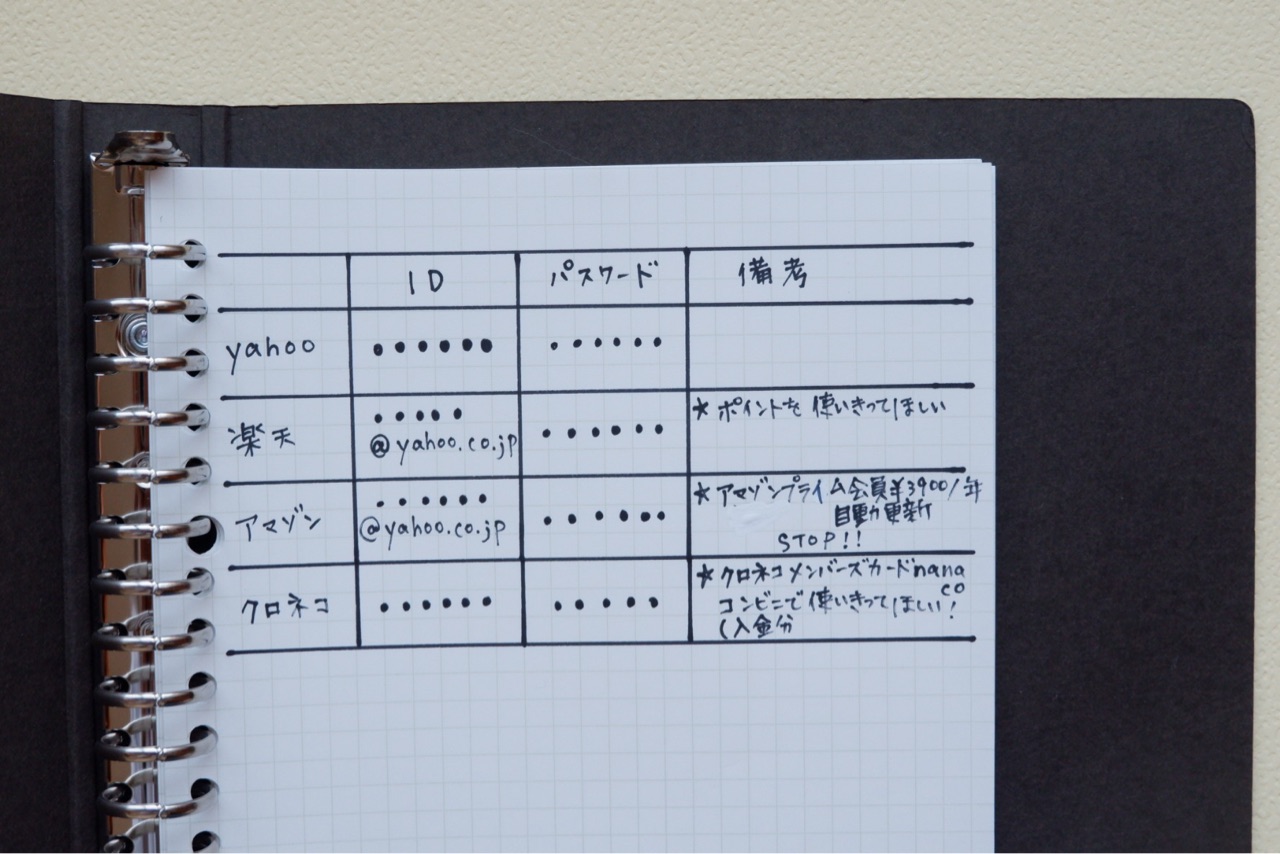 ID パスワード 備考
yahoo •••••• ••••••
楽天 ••••• @yahoo.co.jp •••••• ★ポイントを使いきってほしい
アマゾン •••••• @yahoo.co.jp •••••• ★アマゾンプライム会員¥3900/年
自動更新
STOP!!
クロネコ •••••• ••••• ★クロネコメンバーズカードnanaco
コンビニで使いきってほしい!
(入金分